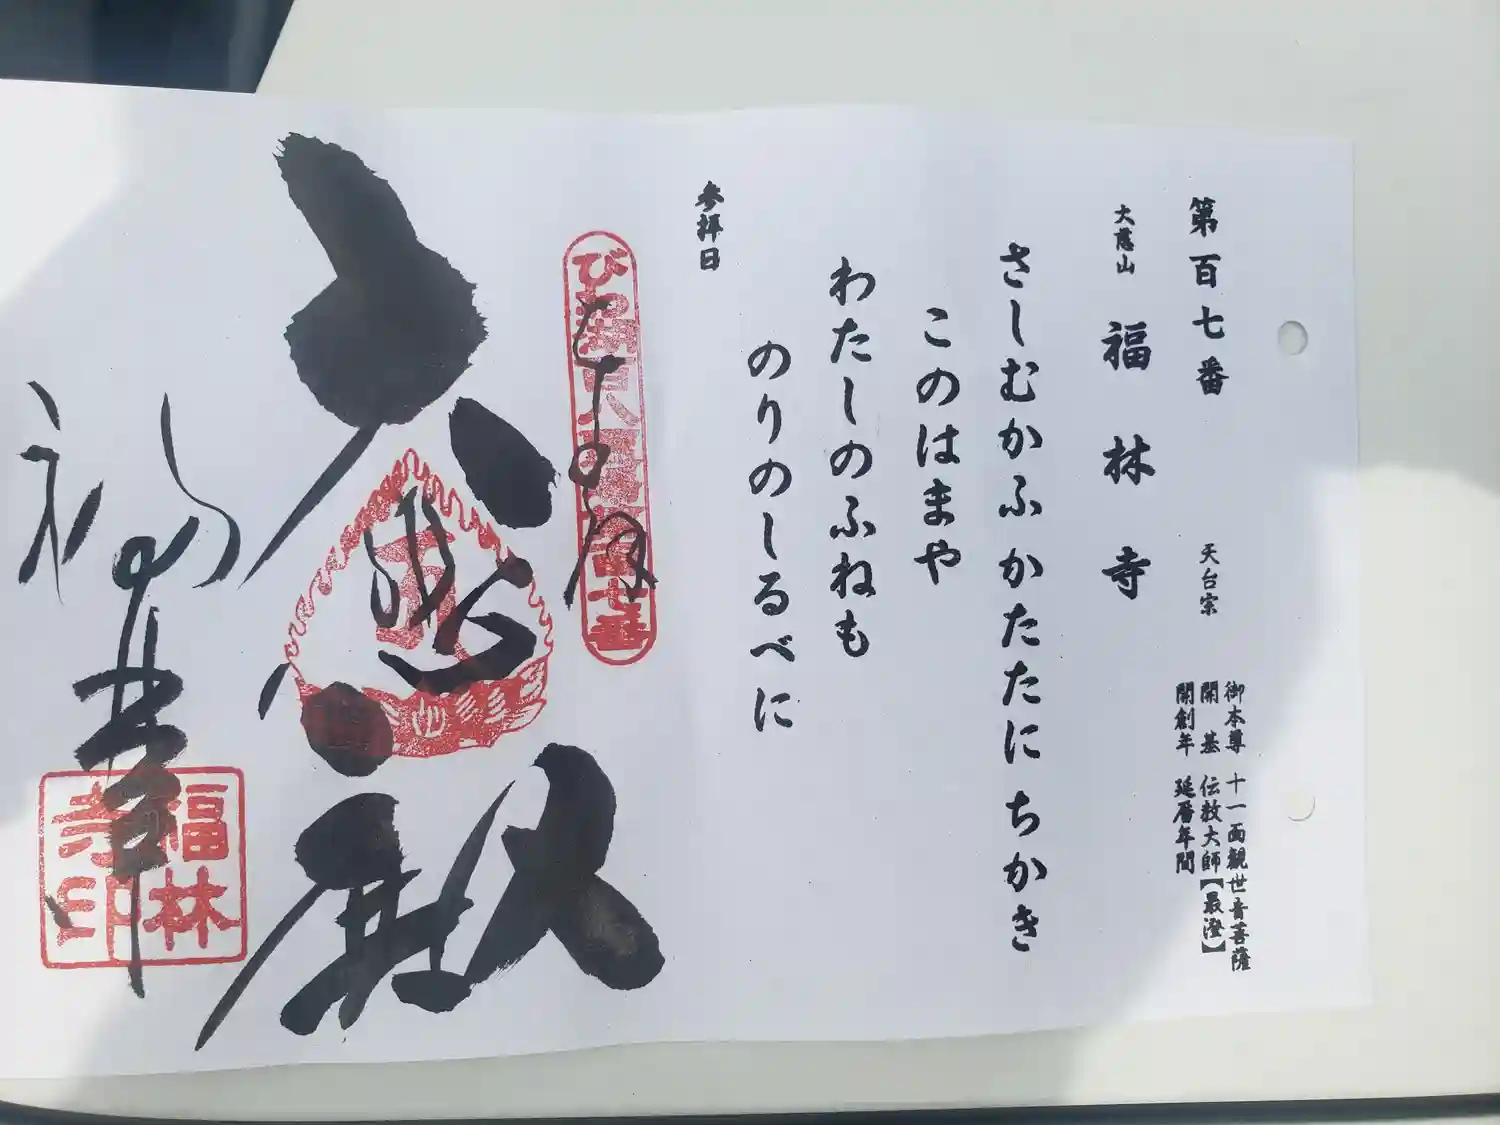 第百七番
天台宗
御本尊 十一面観世音菩薩
開基 伝教大師【最澄】
開創年 延暦年間
大慈山 福林寺
さしむかふかたたにちかき
このはまや
わたしのふねも
のりのしるべに
参拝日
びわ湖百八霊場第百七番
大悲殿
福林寺
福林寺印